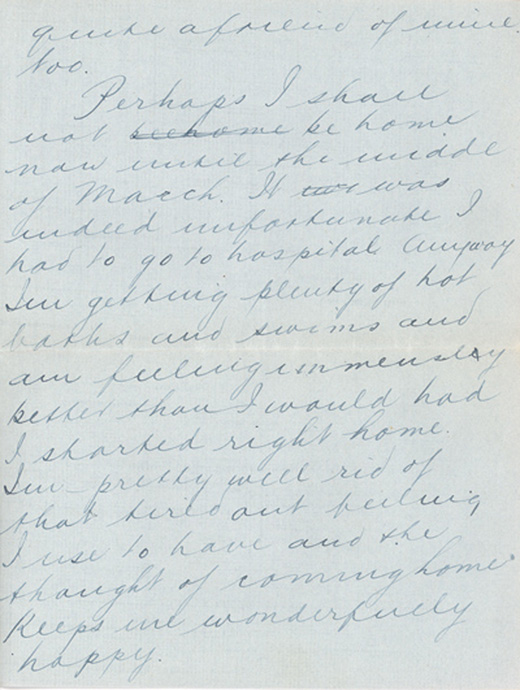 quite a friend of mine
too.
Perhaps I shall
not be home be home
now until the middle
of March. It was was
indeed unfortunate I
had to go to hospital Anyway
I'm getting plenty of hot
baths and swims and
am feeling immensley
better than I would had
I started right home.
I'm pretty well rid of
that tired out feeling
I use to have and the
thought of coming home
Keeps me wonderfully
happy.